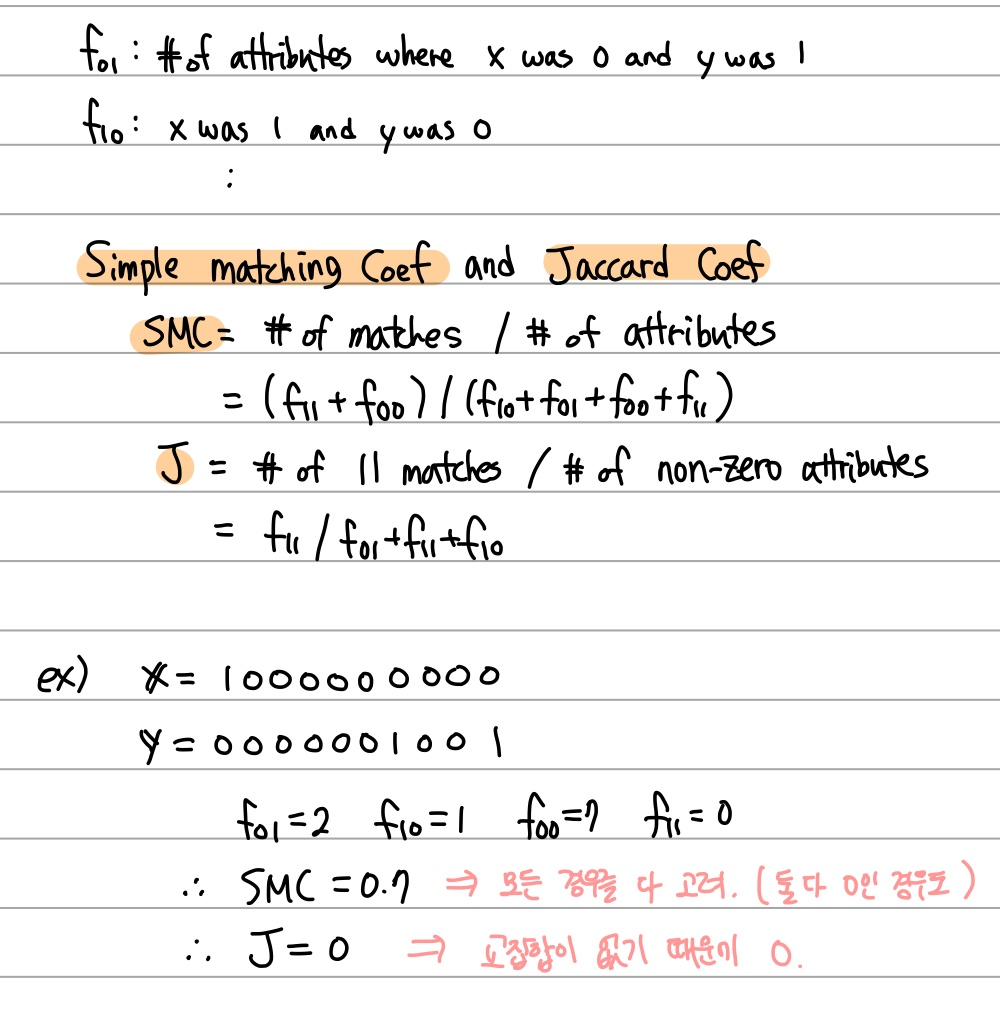 f01 : # of attributes where x was 0 and y was 1
f10 : x was 1 and y was 0
:
Simple matching Coef and Jaccard Coef
SMC = # of matches / # of attributes
= (f11 + f00) / (f10 + f01 + f00 + f11)
J = # of 11 matches / # of non-zero attributes
= f11 / f01 + f11 + f10
ex) X = 1 0 0 0 0 0 0 0 0 0
Y = 0 0 0 0 0 0 1 0 0 1
f01 = 2 f10 = 1 f00 = 7 f11 = 0
∴ SMC = 0.7 ⇒ 모든 경우를 다 고려. (둘 다 0인 경우도)
∴ J = 0 ⇒ 교집합이 없기 때문에 0.